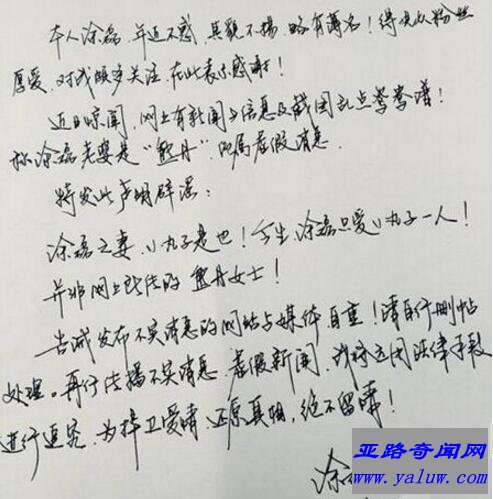 本人涂磊，年近不惑，其貌不扬，略有薄名！得众粉丝
厚爱，对我颇多关注，在此表示感谢！
近日惊闻，网上有新闻与信息及截图乱点鸳鸯谱！
称涂磊老婆是“熊丹”，此属虚假消息。
特发此声明辟谣：
涂磊之妻，小丸子是也！今生，涂磊只爱小丸子一人！
并非网上所传的熊丹女士！
告诫发布不实消息的网站与媒体自重！请自行删帖
处理。再行传播不实消息，虚假新闻，我将运用法律手段
进行追究，为捍卫爱情，还原真相，绝不留情！
涂
亚路奇闻网
www.yaluw.com